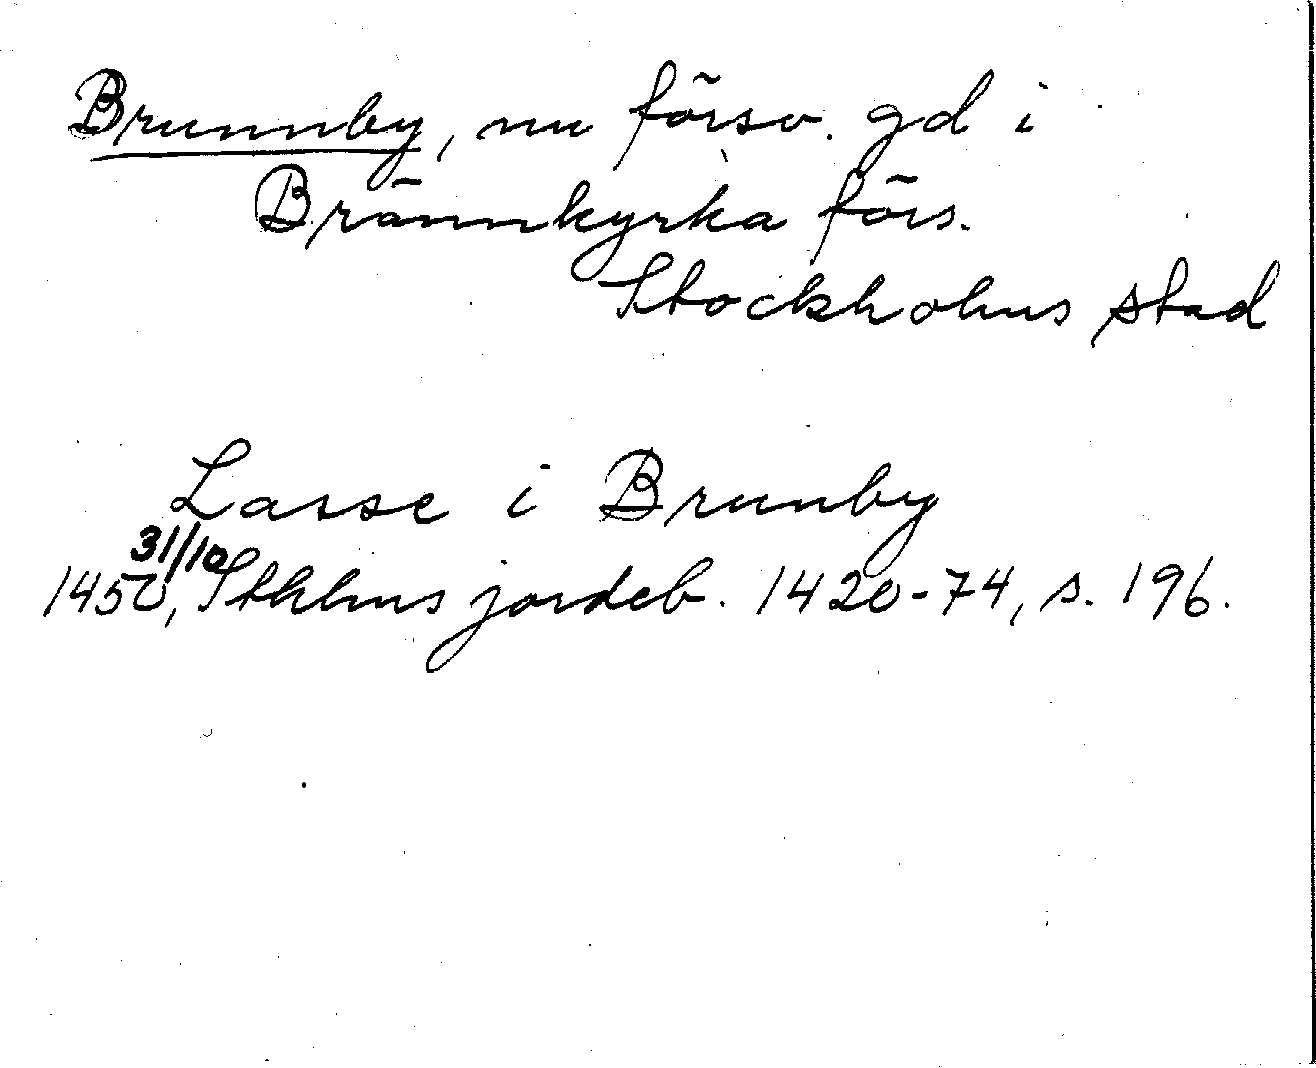 Brunnby, nu försv. gd i
Brännkyrka förs.
Stockholms stad
Lasse i Brunby
31/10
1450, Sthlms jordeb. 1420-74, s. 196.